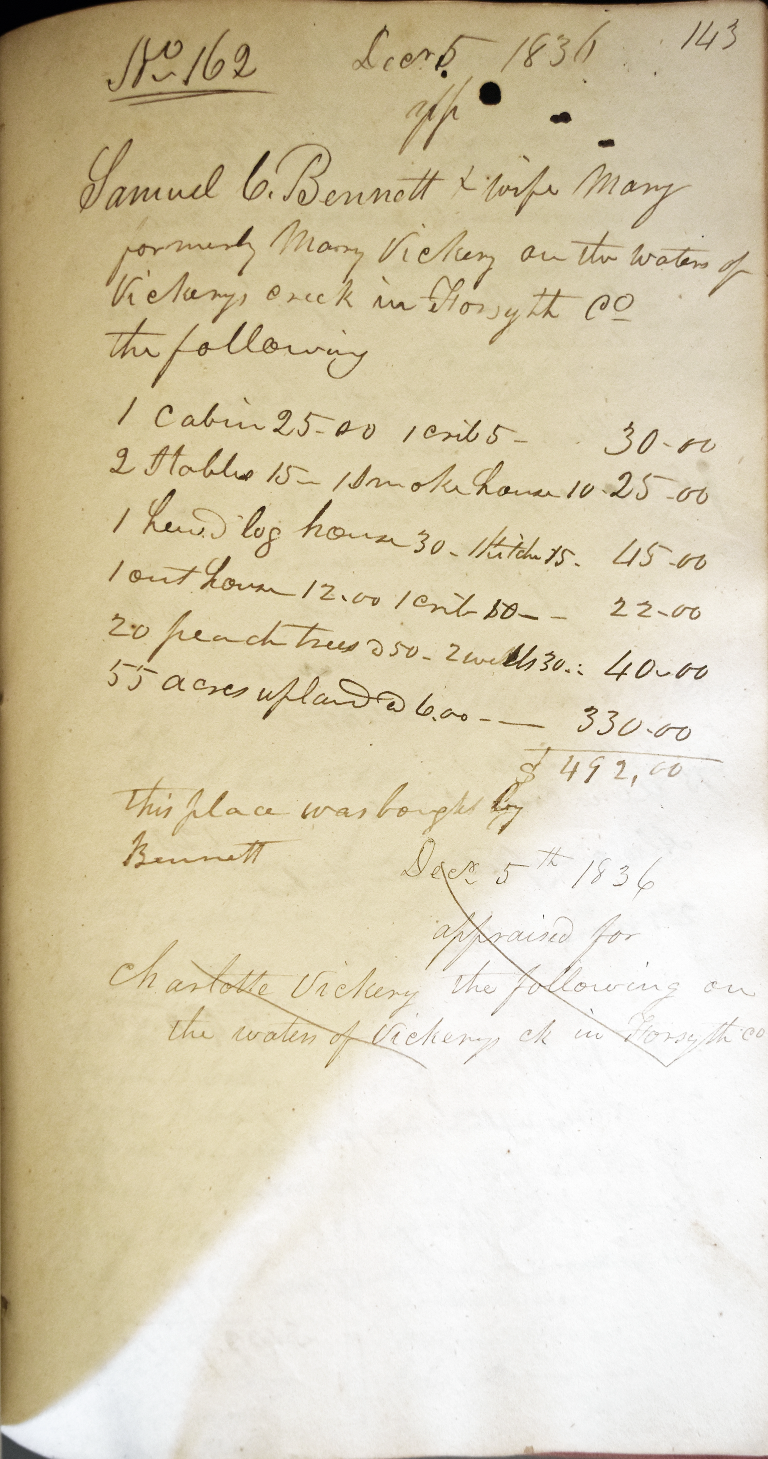 143
No 162 Decr 5 1836
app
Samuel C. Bennett & wife Mary
formerly Mary Vickery on the waters of
Vickerys creek in Forsyth Co
the following
1 Cabin 25-00 1 crib 5- 30-00
2 Stables 15- 1 Smoke house 10- 25-00
1 hewd log house 30- 1 Kitchn 15- 45-00
1 out house 12.00 1 crib 10-- 22-00
20 peach trees @ 50- 2 wells 30.: 40-00
55 acres upland @ 6.00 -- 330-00
$ 492,00
this place was bought by
Bennett
Decr 5th 1836
appraised for
Charlotte Vickery the following on
the waters of Vickerys ck in Forsyth co